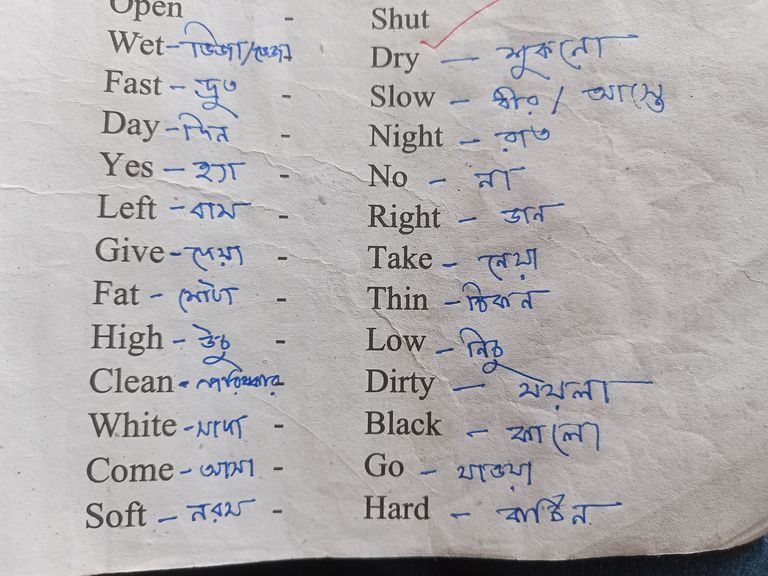 Open - Shut
Wet - ভিজা/ভেজা Dry - শুকনো
Fast - দ্রুত - Slow - ধীর / আস্তে
Day - দিন - Night - রাত
Yes - হ্যা - No - না
Left - বাম - Right - ডান
Give - দেয়া - Take - নেয়া
Fat - মোটা - Thin - চিকন
High - উঁচু - Low - নিচু
Clean - পরিষ্কার - Dirty - ময়লা
White - সাদা - Black - কালো
Come - আসা - Go - যাওয়া
Soft - নরম - Hard - কঠিন